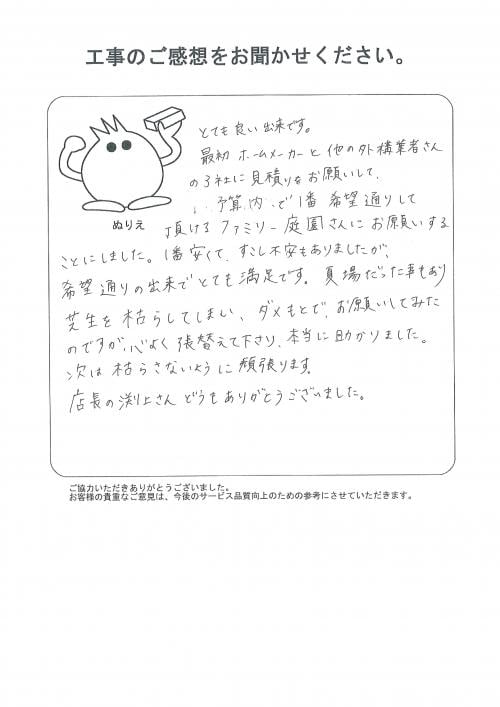 工事のご感想をお聞かせください。
とても良い出来です。
最初 ホームメーカーと他の外構業者さん
の3社に見積りをお願いして、
予算内で1番希望通りして
頂けるファミリー庭園さんにお願いする
ことにしました。1番安くて、すこし不安もありましたが、
希望通りの出来でとても満足です。夏場だった事もあり
芝生を枯らしてしまい、ダメもとで、お願いしてみた
のですが、心よく張替えて下さり、本当に助かりました。
次は枯らさないように頑張ります。
店長の渕上さんどうもありがとうございました。
ぬりえ
ご協力いただきありがとうございました。
お客様の貴重なご意見は、今後のサービス品質向上のための参考にさせていただきます。